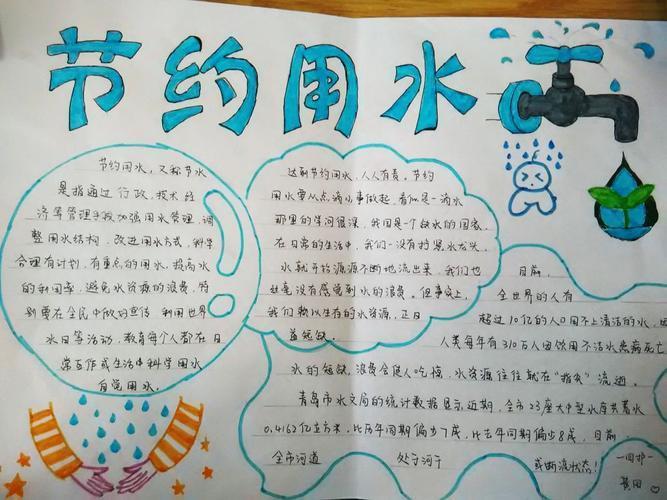 节约用水
节约用水，又称节水
是指通过行政，技术经
济等管理手段加强用水管理，调
整用水结构，改进用水方式，科学
合理有计划，有重点的用水，提高水
的利用率，避免水资源的浪费，特
别要在全民中做好宣传 利用世界
水日等活动，教育每个人都在日
常工作或生活中科学用水
自觉用水.
达到节约用水，人人有责，节约
用水要从点滴小事做起，看似是一滴水
那里的学问很深，我国是一个缺水的国家，
在日常的生活中，我们一没有拧紧水龙头，
水就开始源源不断地流出来，我们也
丝毫没有感觉到水的浪费，但事实上，
我们赖以生存的水资源，正日
益短缺.
目前，
全世界的人有
超过10亿的人口用不上清洁的水，
人类每年有310万人因饮用不洁水患病死亡
水的短缺，浪费会使人吃惊，水资源往往就在"指尖"流逝。
青岛市水文局的统计数据显示近期，全市23座大中型水库共蓄水
0.4162亿立方米，比历年同期偏少7成，比去年同期偏少8成，目前
全市河道 处于河干 或断流状态！